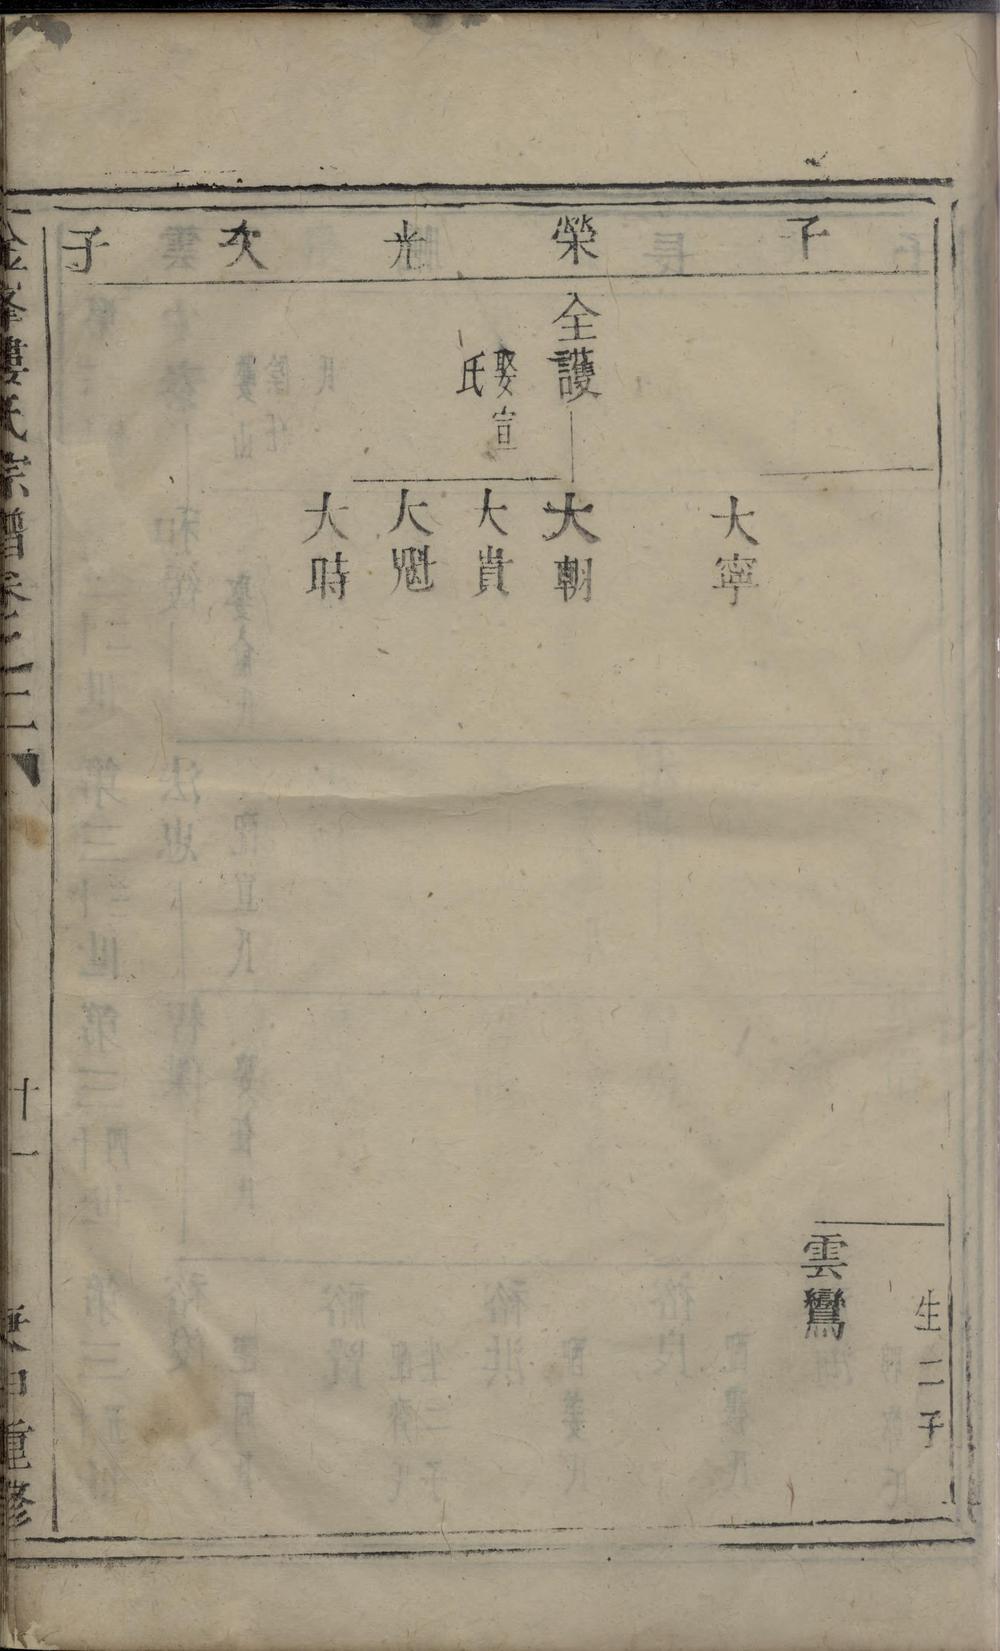 子
榮光次子
生二子
雲鸞
大寧
全護
娶宣
氏
大朝
大貴
大魁
大時
氏宗譜卷之
十一
重修